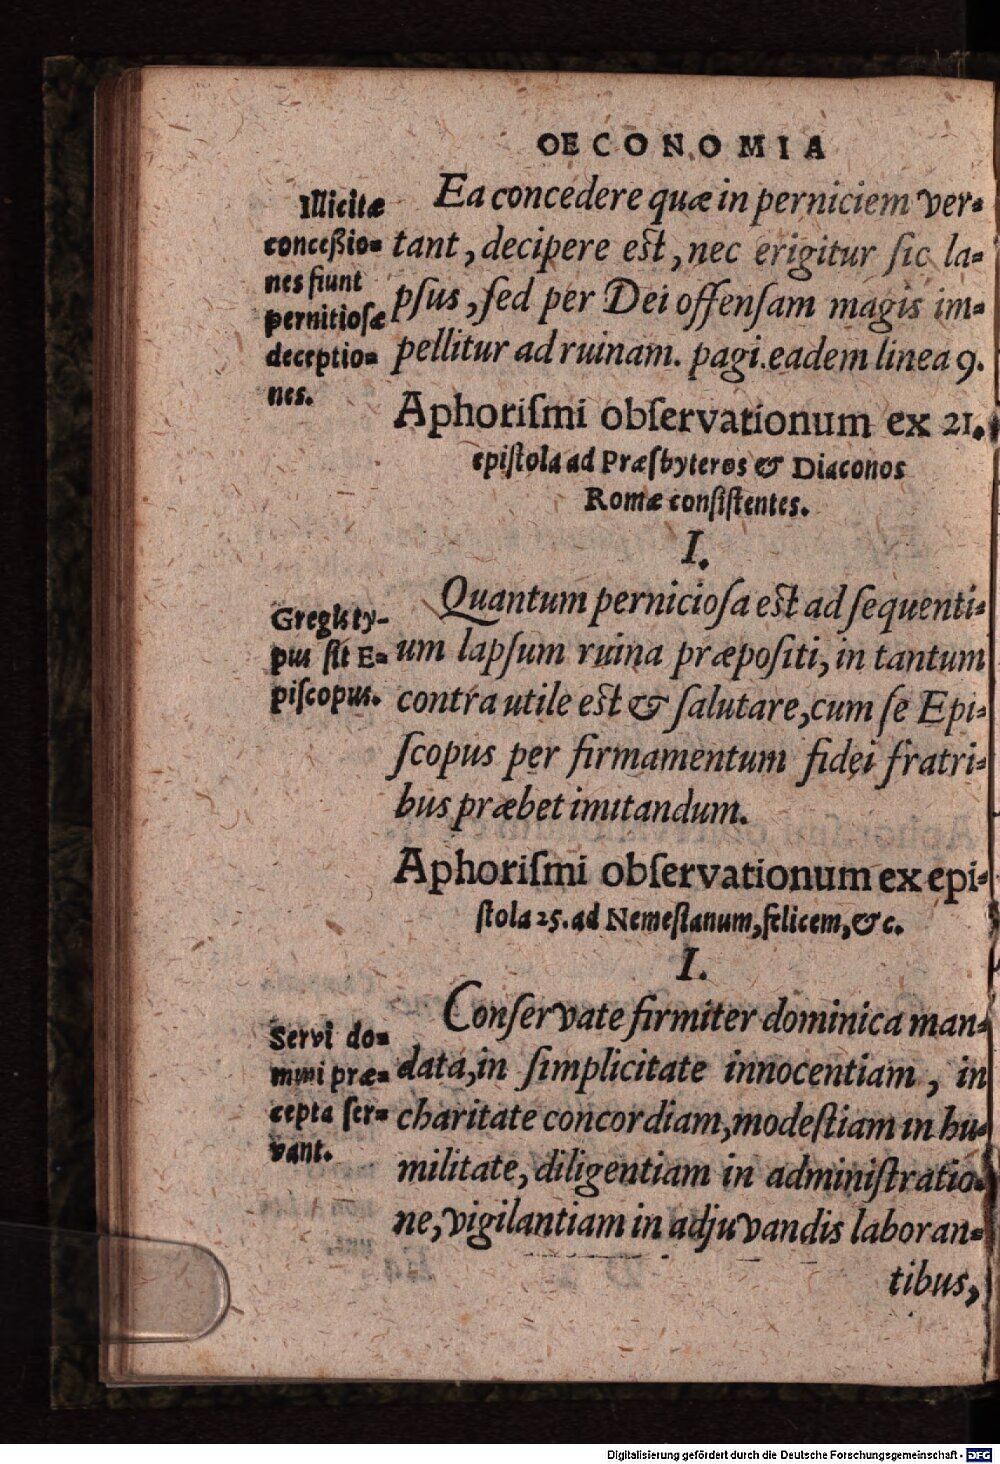 OECONOMIA
Illicitæ
conceßio-
nes fiunt
pernitioſæ
deceptio-
nes.
Ea concedere quæ in perniciem ver-
tant, decipere est, nec erigitur ſic la-
pſus, ſed per Dei offenſam magis im-
pellitur ad ruinam. pagi. eadem linea 9.
Aphoriſmi obſervationum ex 21.
epiſtola ad Præſbyteros & Diaconos
Romæ conſiſtentes.
I.
Gregis ty-
pus ſit E-
piſcopus.
Quantum pernicioſa est ad ſequenti-
um lapſum ruina præpoſiti, in tantum
contra utile est & ſalutare, cum ſe Epi-
ſcopus per firmamentum fidei fratri-
bus præbet imitandum.
Aphoriſmi obſervationum ex epi-
ſtola 25. ad Nemeſianum, felicem, &c.
I.
Servi do-
mini præ-
cepta ſer-
vant.
Conſervate firmiter dominica man-
data, in ſimplicitate innocentiam, in
charitate concordiam, modeſtiam in hu-
militate, diligentiam in adminiſtratio-
ne, vigilantiam in adjuvandis laboran-
tibus,
Digitalisierung gefördert durch die Deutsche Forschungsgemeinschaft - DFG